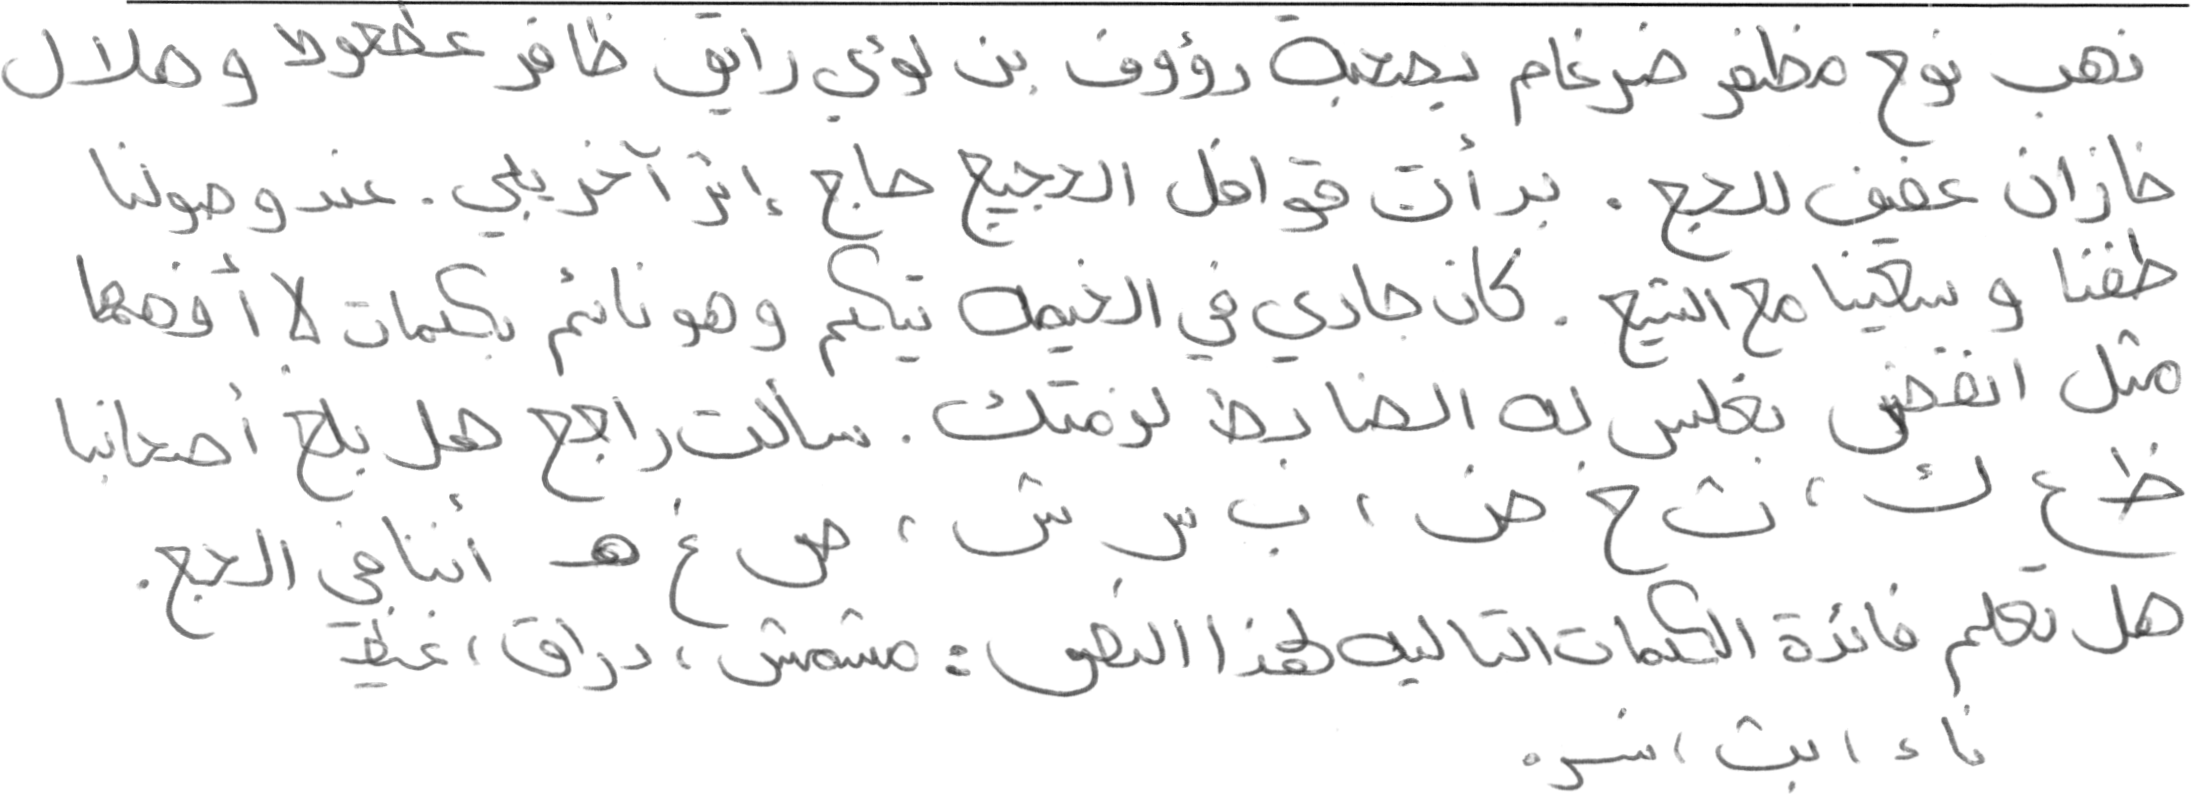 ذهب نوح مظفر ضرغام بصحبة رؤوف بن لؤي رايق ظافر عطعوط و هلال
خازان عفيف للحج . بدأت قوافل الحجيج حاج إثر آخر يلبي . عند وصولنا
طفنا و سعينا مع الشيخ . كان جاري في الخيمه يتكلم وهو نائم بكلمات لا أفهمها
مثل انفض بغلس له الضابط لزمتك . سألت راجح هل بلغ أصحابنا
ظ ع ك ، ث خ ض ، ب س ش ، ص غ هـ أننا في الحج .
هل تعلم فائدة الكلمات التاليه لهذا النص : مشمش ، دراق ،
ناء ، ابث ،